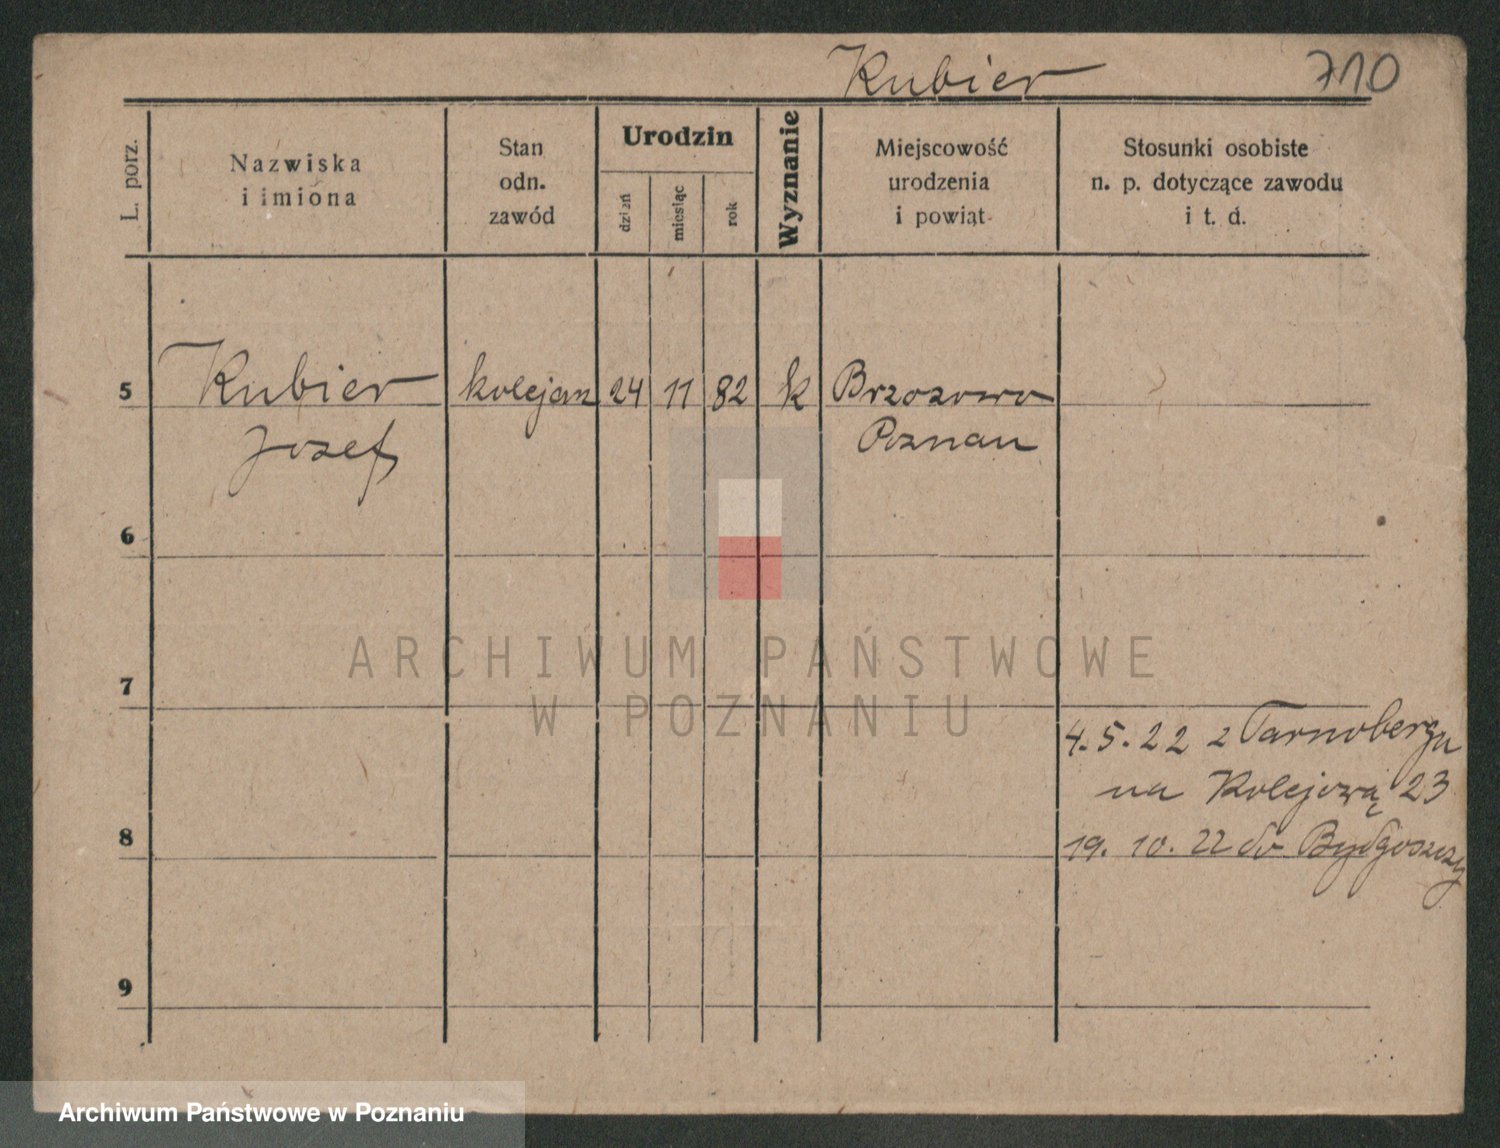 Kubier 710
L. porz.
Nazwiska
i imiona
Stan
odn.
zawód
Urodzin
dzień
miesiąc
rok
Wyznanie
Miejscowość
urodzenia
i powiat
Stosunki osobiste
n. p. dotyczące zawodu
i t. d.
5 Kubier kolejarz 24 11 82 k Brzozowo
Jozef Poznan
6
ARCHIWUM PAŃSTWOWE
W POZNANIU
7
4.5.22 z Tarnobergu
na Kolejową 23
8 19. 10. 22 do Bydgoszczy
9
Archiwum Państwowe w Poznaniu